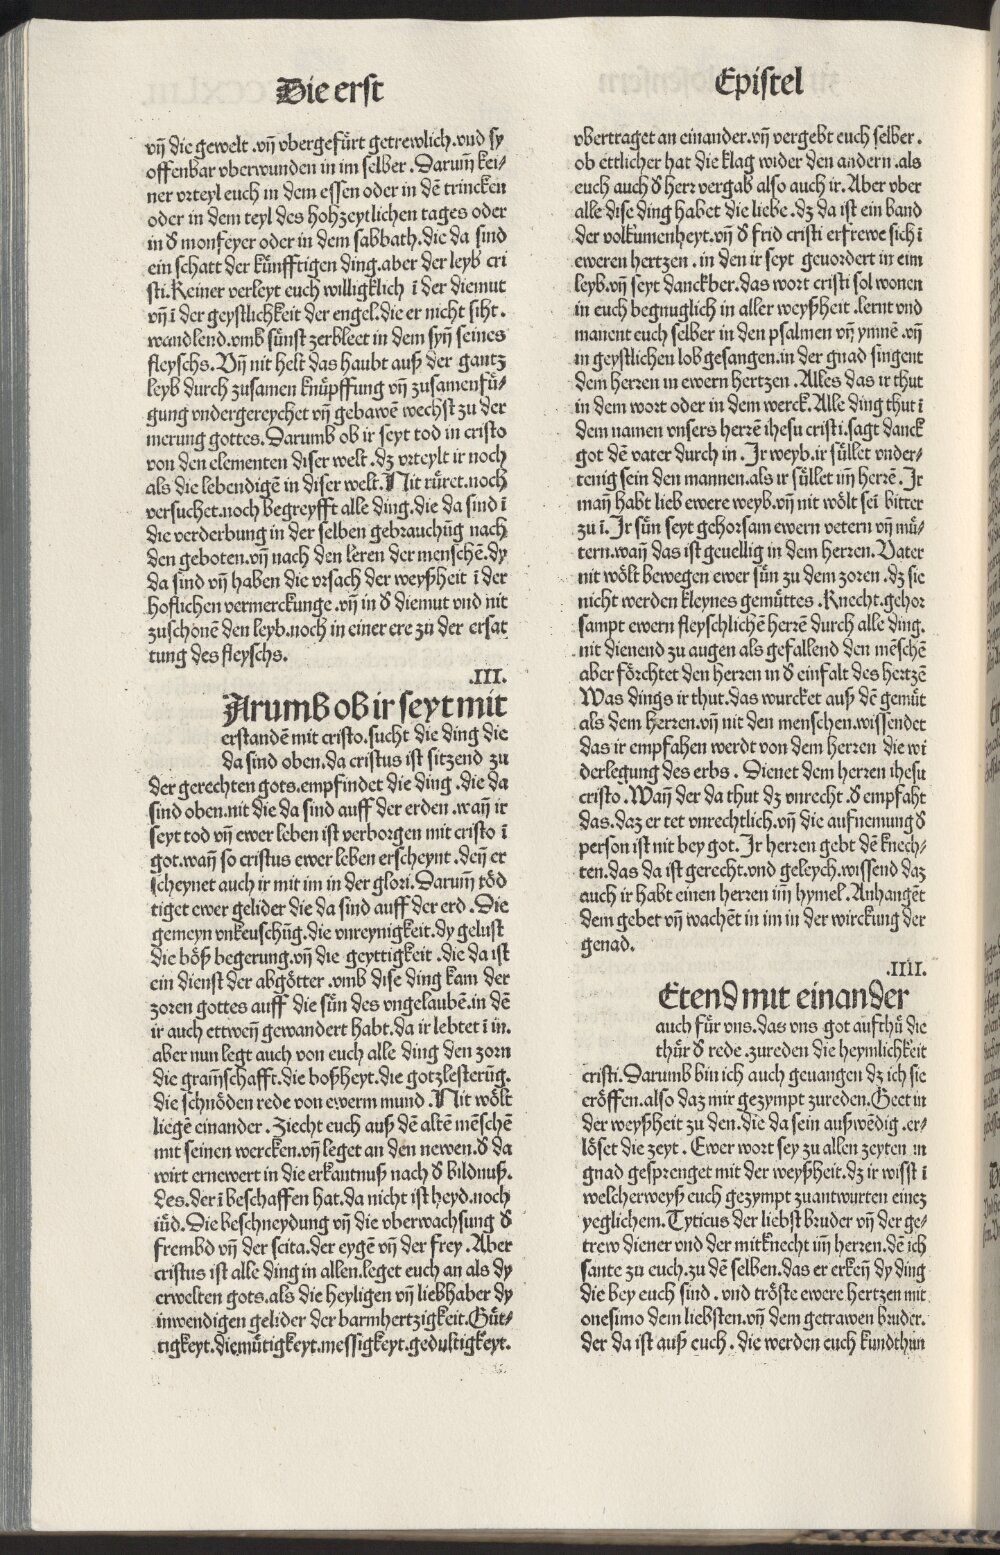 Die erst
Epistel
vn̄ die gewelt .vn̄ vbergefu̇rt getrewlich.vnd sy
offenbar vberwunden in im selber . Darum̄ kei⸗
ner vrteyl euch in dem essen oder in dē trincken
oder in dem teyl des hohzeytlichen tages oder
in d᷑ monfeyer oder in dem sabbath.die da sind
ein schatt der ku̇nfftigen ding.aber der leyb cri
sti.Keiner verleyt euch willigklich ī der diemut
vn̄ ī der geystlichkeit der engel.die er nicht siht .
wandlend.vmb su̇nst zerbleet in dem syn̄ seines
fleyschs. Vn̄ nit helt das haubt auß der gantz
leyb durch zusamen knu̇pffung vn̄ zusamenfu̇⸗
gung vndergereychet vn̄ gebawē wechst zu der
merung gottes. Darumb ob ir seyt tod in cristo
von den elementen diser welt .dz vrteylt ir noch
als die lebendigē in diser welt. Nit ru̇ret.noch
versuchet.noch begreyfft alle ding.die da sind ī
die verderbung in der selben gebrauchūg nach
den geboten.vn̄ nach den leren der menschē.dy
da sind vn̄ haben die vrsach der weyßheit ī der
hoflichen vermerckunge .vn̄ in d᷑ diemut vnd nit
zuschonē den leyb.noch in einer ere zu der ersat
tung des fleyschs.
.III.
Arumb ob ir seyt mit
erstandē mit cristo.sucht die ding die
da sind oben.da cristus ist sitzend zu
der gerechten gots.empfindet die ding .die da
sind oben.nit die da sind auff der erden .wan̄ ir
seyt tod vn̄ ewer leben ist verborgen mit cristo ī
got.wan̄ so cristus ewer leben erscheynt .den̄ er
scheynet auch ir mit im in der glori. Darum̄ tȯd
tiget ewer gelider die da sind auff der erd . Die
gemeyn vnkeuschūg.die vnreynigkeit.dy gelust
die bȯß begerung.vn̄ die geyttigkeit .die da ist
ein dienst der abgȯtter .vmb dise ding kam der
zoren gottes auff die su̇n des vngelaubē.in dē
ir auch ettwen̄ gewandert habt.da ir lebtet ī in.
aber nun legt auch von euch alle ding den zorn
die gram̄schafft.die boßheyt.die gotzlesterūg.
die schnȯden rede von ewerm mund . Nit wȯlt
liegē einander . Ziecht euch auß dē altē mēschē
mit seinen wercken.vn̄ leget an den newen.d᷑ da
wirt ernewert in die erkantnuß nach d᷑ bildnuß.
Des.der ī beschaffen hat.da nicht ist heyd.noch
iu̇d. Die beschneydung vn̄ die vberwachsung d᷑
frembd vn̄ der scita.der eygē vn̄ der frey . Aber
cristus ist alle ding in allen.leget euch an als dy
erwelten gots.als die heyligen vn̄ liebhaber dy
inwendigen gelider der barmhertzigkeit. Gu̇t⸗
tigkeyt.diemu̇tigkeyt.messigkeyt.gedultigkeyt.
vbertraget an einander.vn̄ vergebt euch selber .
ob ettlicher hat die klag wider den andern .als
euch auch d᷑ herr vergab also auch ir. Aber vber
alle dise ding habet die liebe .dz da ist ein band
der volkumenheyt.vn̄ d᷑ frid cristi erfrewe sich ī
eweren hertzen . in den ir seyt gevordert in eim
leyb.vn̄ seyt danckber.das wort cristi sol wonen
in euch begnuglich in aller weyßheit .lernt vnd
manent euch selber in den psalmen vn̄ ymnē .vn̄
in geystlichen lobgesangen.in der gnad singent
dem herren in ewern hertzen . Alles das ir thut
in dem wort oder in dem werck. Alle ding thut ī
dem namen vnsers herrē ihesu cristi.sagt danck
got dē vater durch in . Ir weyb.ir su̇llet vnder⸗
tenig sein den mannen.als ir su̇llet im̄ herrē . Ir
man̄ habt lieb ewere weyb.vn̄ nit wȯlt sei bitter
zu ī. Ir su̇n seyt gehorsam ewern vetern vn̄ mu̇⸗
tern.wan̄ das ist gevellig in dem herren. Vater
nit wȯlt bewegen ewer su̇n zu dem zoren .dz sie
nicht werden kleynes gemu̇ttes . Knecht.gehor
sampt ewern fleyschlichē herrē durch alle ding.
nit dienend zu augen als gefallend den mēschē
aber fȯrchtet den herren in d᷑ einfalt des hertzē
Was dings ir thut.das wurcket auß dē gemu̇t
als dem herren.vn̄ nit den menschen.wissendet
das ir empfahen werdt von dem herren die wi
derlegung des erbs . Dienet dem herren ihesu
cristo . Wan̄ der da thut dz vnrecht.d᷑ empfaht
das.daz er tet vnrechtlich.vn̄ die aufnemung d᷑
person ist nit bey got. Ir herren gebt dē knech⸗
ten.das da ist gerecht.vnd geleych.wissend daz
auch ir habt einen herren im̄ hymel. Anhangēt
dem gebet vn̄ wachēt in im in der wirckung der
genad.
.IIII.
Etend mit einander
auch fu̇r vns.das vns got aufthu̇ die
thu̇r d᷑ rede .zureden die heymlichkeit
cristi. Darumb bin ich auch gevangen dz ich sie
erȯffen.also daz mir gezympt zureden. Geet in
der weyßheit zu den.die da sein außwēdig .er⸗
lȯset die zeyt . Ewer wort sey zu allen zeyten in
gnad gesprenget mit der weyßheit.dz ir wisst ī
welcherweyß euch gezympt zuantwurten einez
yeglichem. Tyticus der liebst bruder vn̄ der ge⸗
trew diener vnd der mitknecht im̄ herren.dē ich
sante zu euch.zu dē selben.das er erken̄ dy ding
die bey euch sind . vnd trȯste ewere hertzen mit
onesimo dem liebsten.vn̄ dem getrawen bruder.
der da ist auß euch . die werden euch kundthun